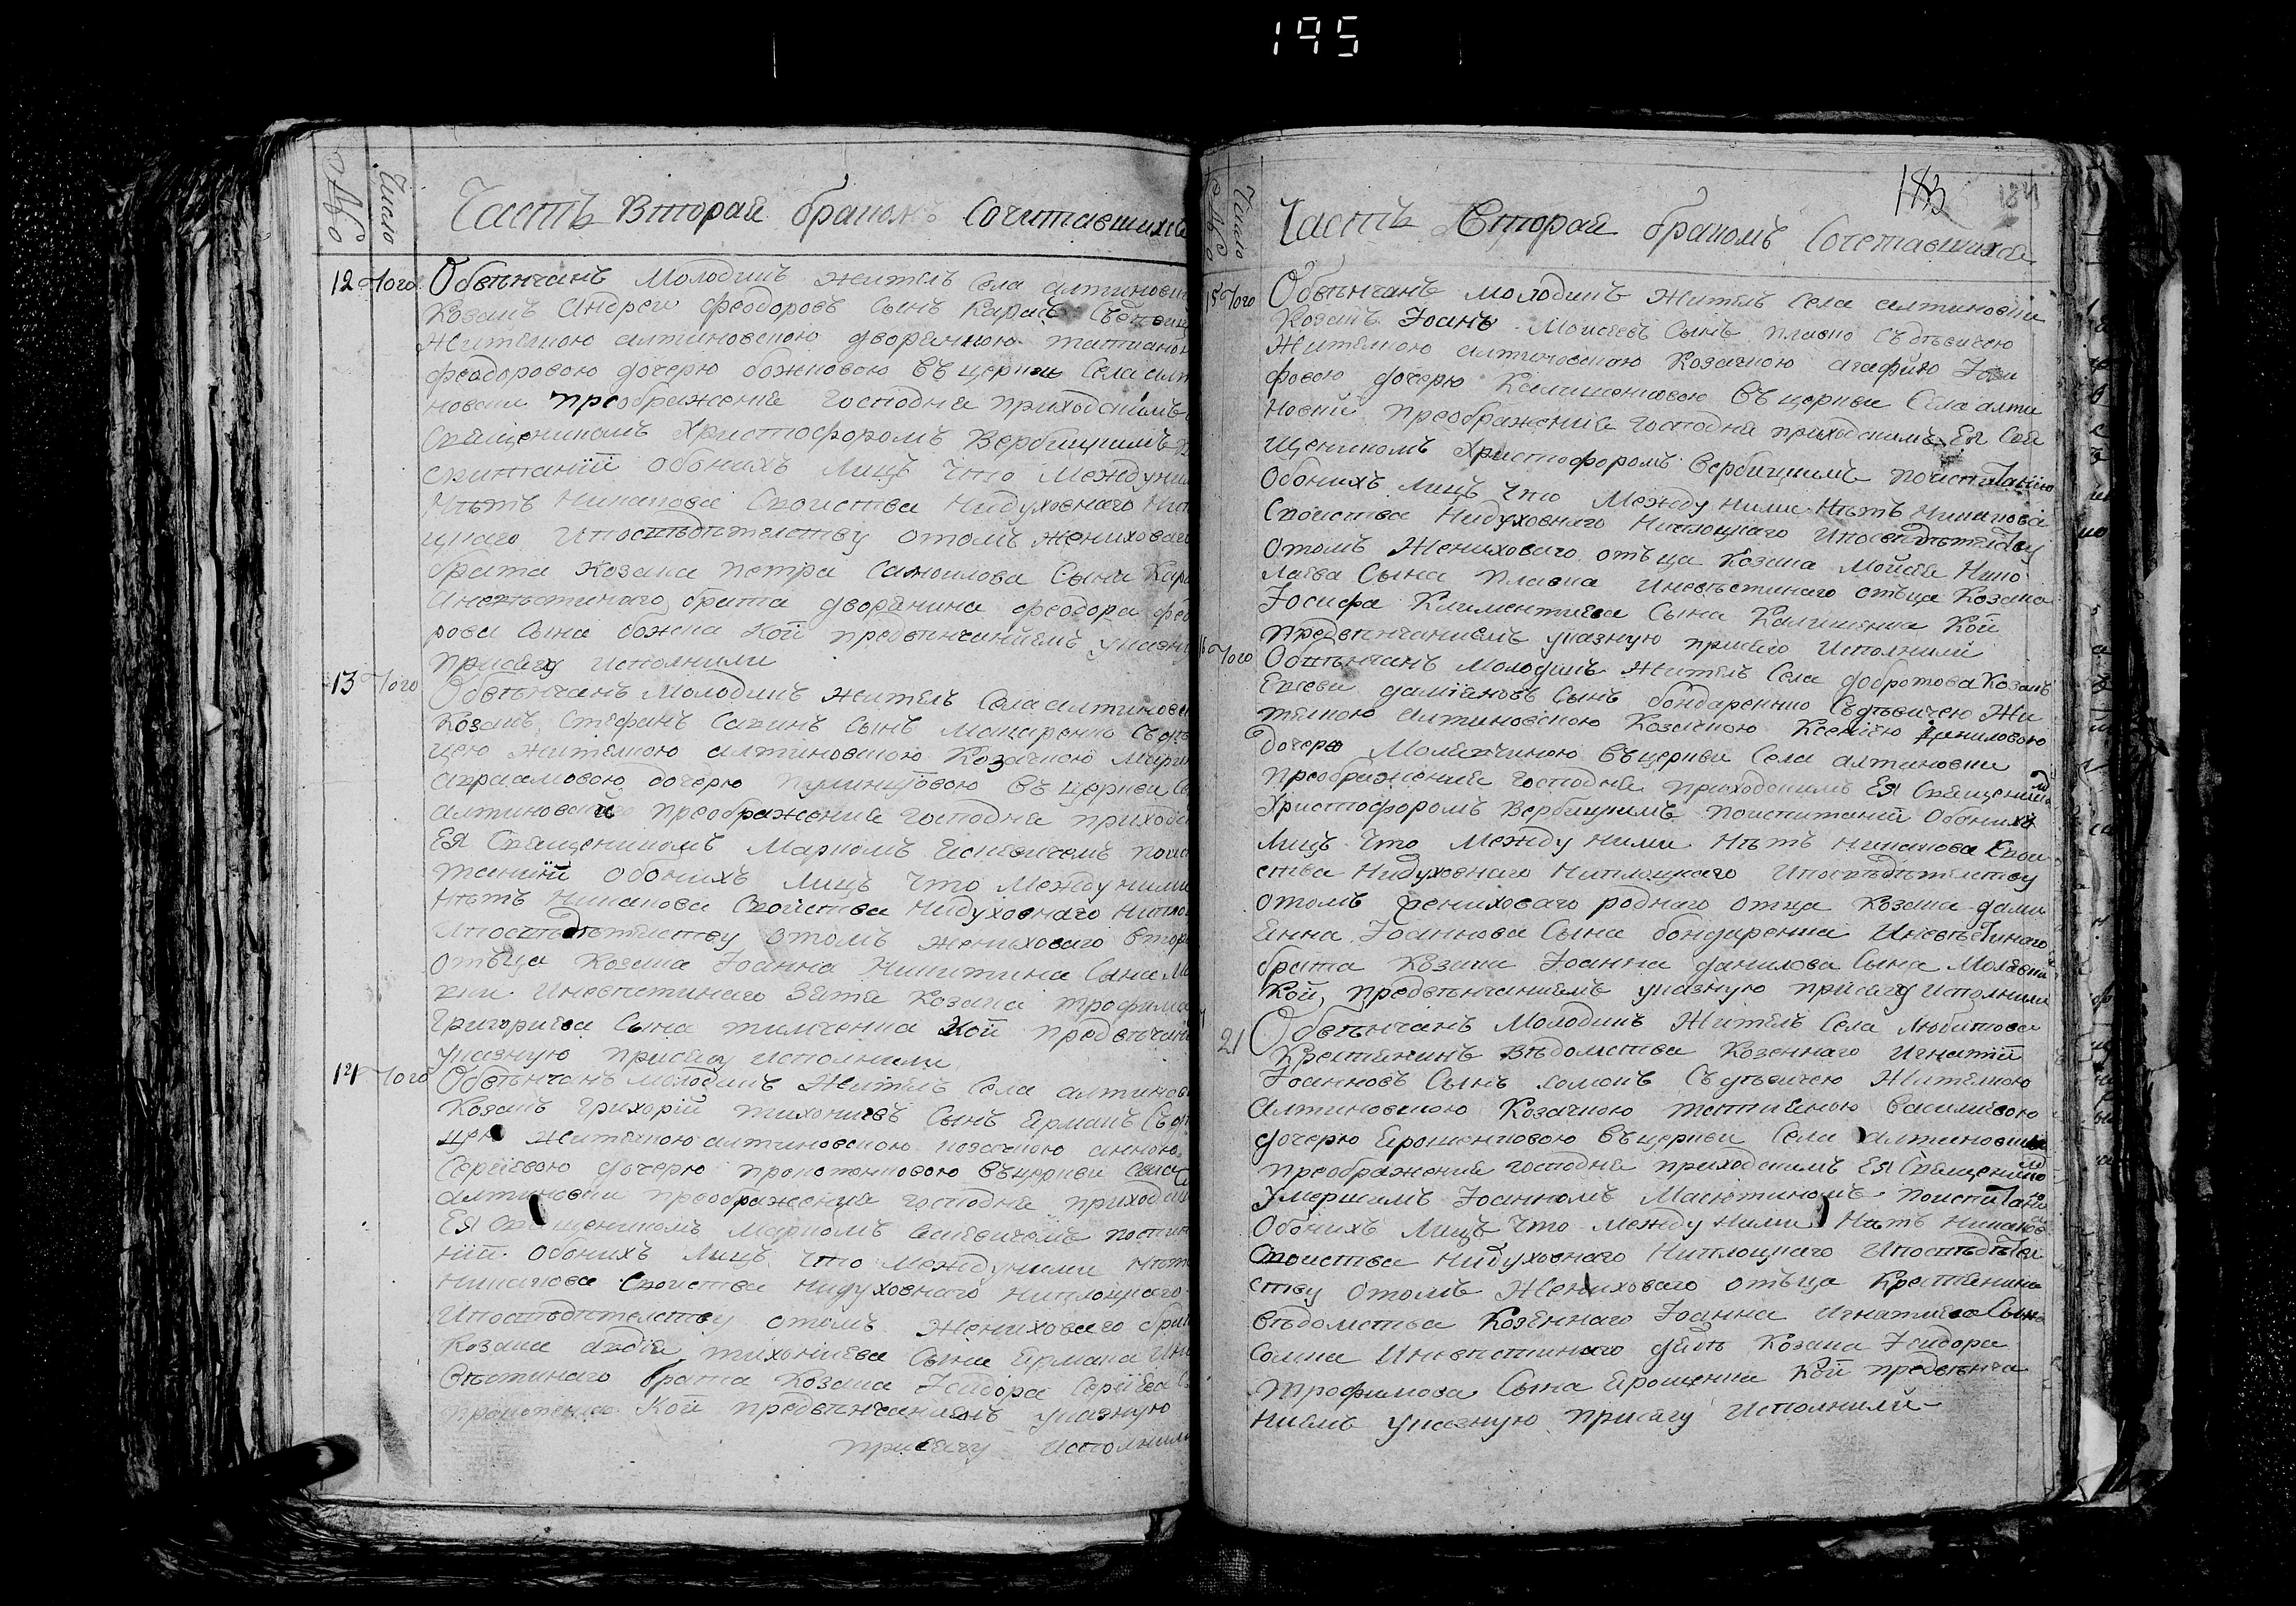 195
№
Число
Часть Вторая бракомъ Сочитавшихся
12 Того Обвѣнчанъ Молодикъ житель Села алтиновки
Козакъ Андреи феодоровъ Сынъ Карась Съдѣвицею
Жителкою алтиновскою дворянкою татианою
феодоровою дочерю божковою въ церкви Села алти
новки преображения Господня приходскимъ
Священикомъ Христофоромъ Вербицкимъ
спитаніи обоихъ лицъ что Между ними
Нѣтъ Никакова Своиства Нидуховнаго Нипло
цкаго Ипосвѣдѣтелству отомъ жениховаго
брата козака петра Самоилова Сына Кара
Иневѣстинаго брата дворянина феодора фео
рова Сына божка Кои предвѣнчаниемъ указную
присягу исполнили
13 Того Обвѣнчанъ Молодикъ житель Села алтиновки
Козакъ Стефанъ Савинъ Сынъ Макаренко Съдѣви
цею жителкою алтиновскою Козачкою
авраамовою дочерю въ церкви
алтиновски преображения Господня приходс
Ея Священикомъ Маркомъ поис
танию обоихъ лицъ что Между ними
Нѣтъ Никакова Своиства Нидуховнаго Нипло
Ипосвѣдѣтелству отомъ жениховаго втораго
отъца Козака Іоанна Никитина Сына
Иневѣстинаго Зятя Козака трофима
Григориева Сына тимченка Кои предвѣнчани
указную присягу исполнили
14 Того Обвѣнчанъ молодикъ Житель Села алтинов
Козакъ Григорій тихониевъ Сынъ Ермакъ Съдѣ
цею жителкою алтиновскою козачкою анною
Сергіевою дочерю прокопенковою въ церкви Села
алтиновки преображения Господня приходски
Ея Священикомъ Маркомъ поспита
ніи обоихъ лицъ что Между ними Нѣтъ
Никакова Своиства Нидуховнаго Ниплоцкаго
Ипосвѣдѣтелству отомъ Жениховаго брата
Козака тихониева Сына Ермака Ине
вѣстинаго брата Козака Ісидора Сергіева
Кои предвѣнчаниемъ указную
присягу исполнили
183 184
№
Число
Часть Вторая бракомъ Сочетавшихся
15 Того Обвѣнчанъ молодикъ житель Села алтиновки
Козакъ Іоанъ Моисеевъ Сынъ плавко Съдѣвицею
Жителкою алтиновскою Козачкою агафию Іоси
фовою дочерю Калишенковою въ церкви Села алти
новки преображения Господня приходскимъ Ея Свя
щеникомъ Христофоромъ Вербицкимъ поиспитанію
обоихъ лицъ что Между ними Нѣтъ Никакова
Своиства Нидуховнаго Ниплоцкаго Ипосвѣдѣтелству
отомъ Жениховаго отъца Козака Мойсея Нико
лаева Сына плавка Иневѣстинаго отъца Козака
Іосифа Климентиева Сына Калишенка Кои
предвѣнчаниемъ указную присягу Исполнили
16 Того Обвѣнчанъ молодикъ Житель Села добротова Козакъ
Евсеви даміановъ Сынъ бондаренко Съдѣвицею Жи
телкою алтиновскою Козачкою Ксениею даниловою
дочерю въ церкви Села алтиновки
преображения Господня приходскимъ Ея Священикомъ
Христофоромъ Вербицкимъ поиспитаніи обоихъ
лицъ что Между ними Нѣтъ Никакова Свои
ства Нидуховнаго Ниплоцкаго Ипосвѣдѣтелству
отомъ жениховаго роднаго отца козака дами
янна Іоаннова Сына бондаренка Иневѣстинаго
брата козака Іоанна данилова Сына
Кои предвѣнчаниемъ указную присягу Исполнили
21 Обвѣнчанъ Молодикъ Житель Села любитова
Крестянинъ Вѣдомства Козеннаго Игнатіи
Іоанновъ Сынъ Съдѣвицею Жителкою
Алтиновскою Козачкою татияною василиевою
дочерю Ерошенковою въ церкви Села алтиновки
преображения Господня приходскимъ Ея Священикомъ
Умершимъ Іоанномъ Масютиномъ поиспитанію
обоихъ лицъ что между ними Нѣтъ Никакова
своиства Нидуховнаго Ниплоцкаго Ипосвѣдѣтел
ству отомъ Жениховаго отъца Крестянина
вѣдомства Козеннаго Іоанна Игнатиева Сына
Иневѣстинаго дядѣ Козака Ісидора
трофимова Сына Ерошенка Кои предвѣнча
ниемъ указную присягу Исполнили